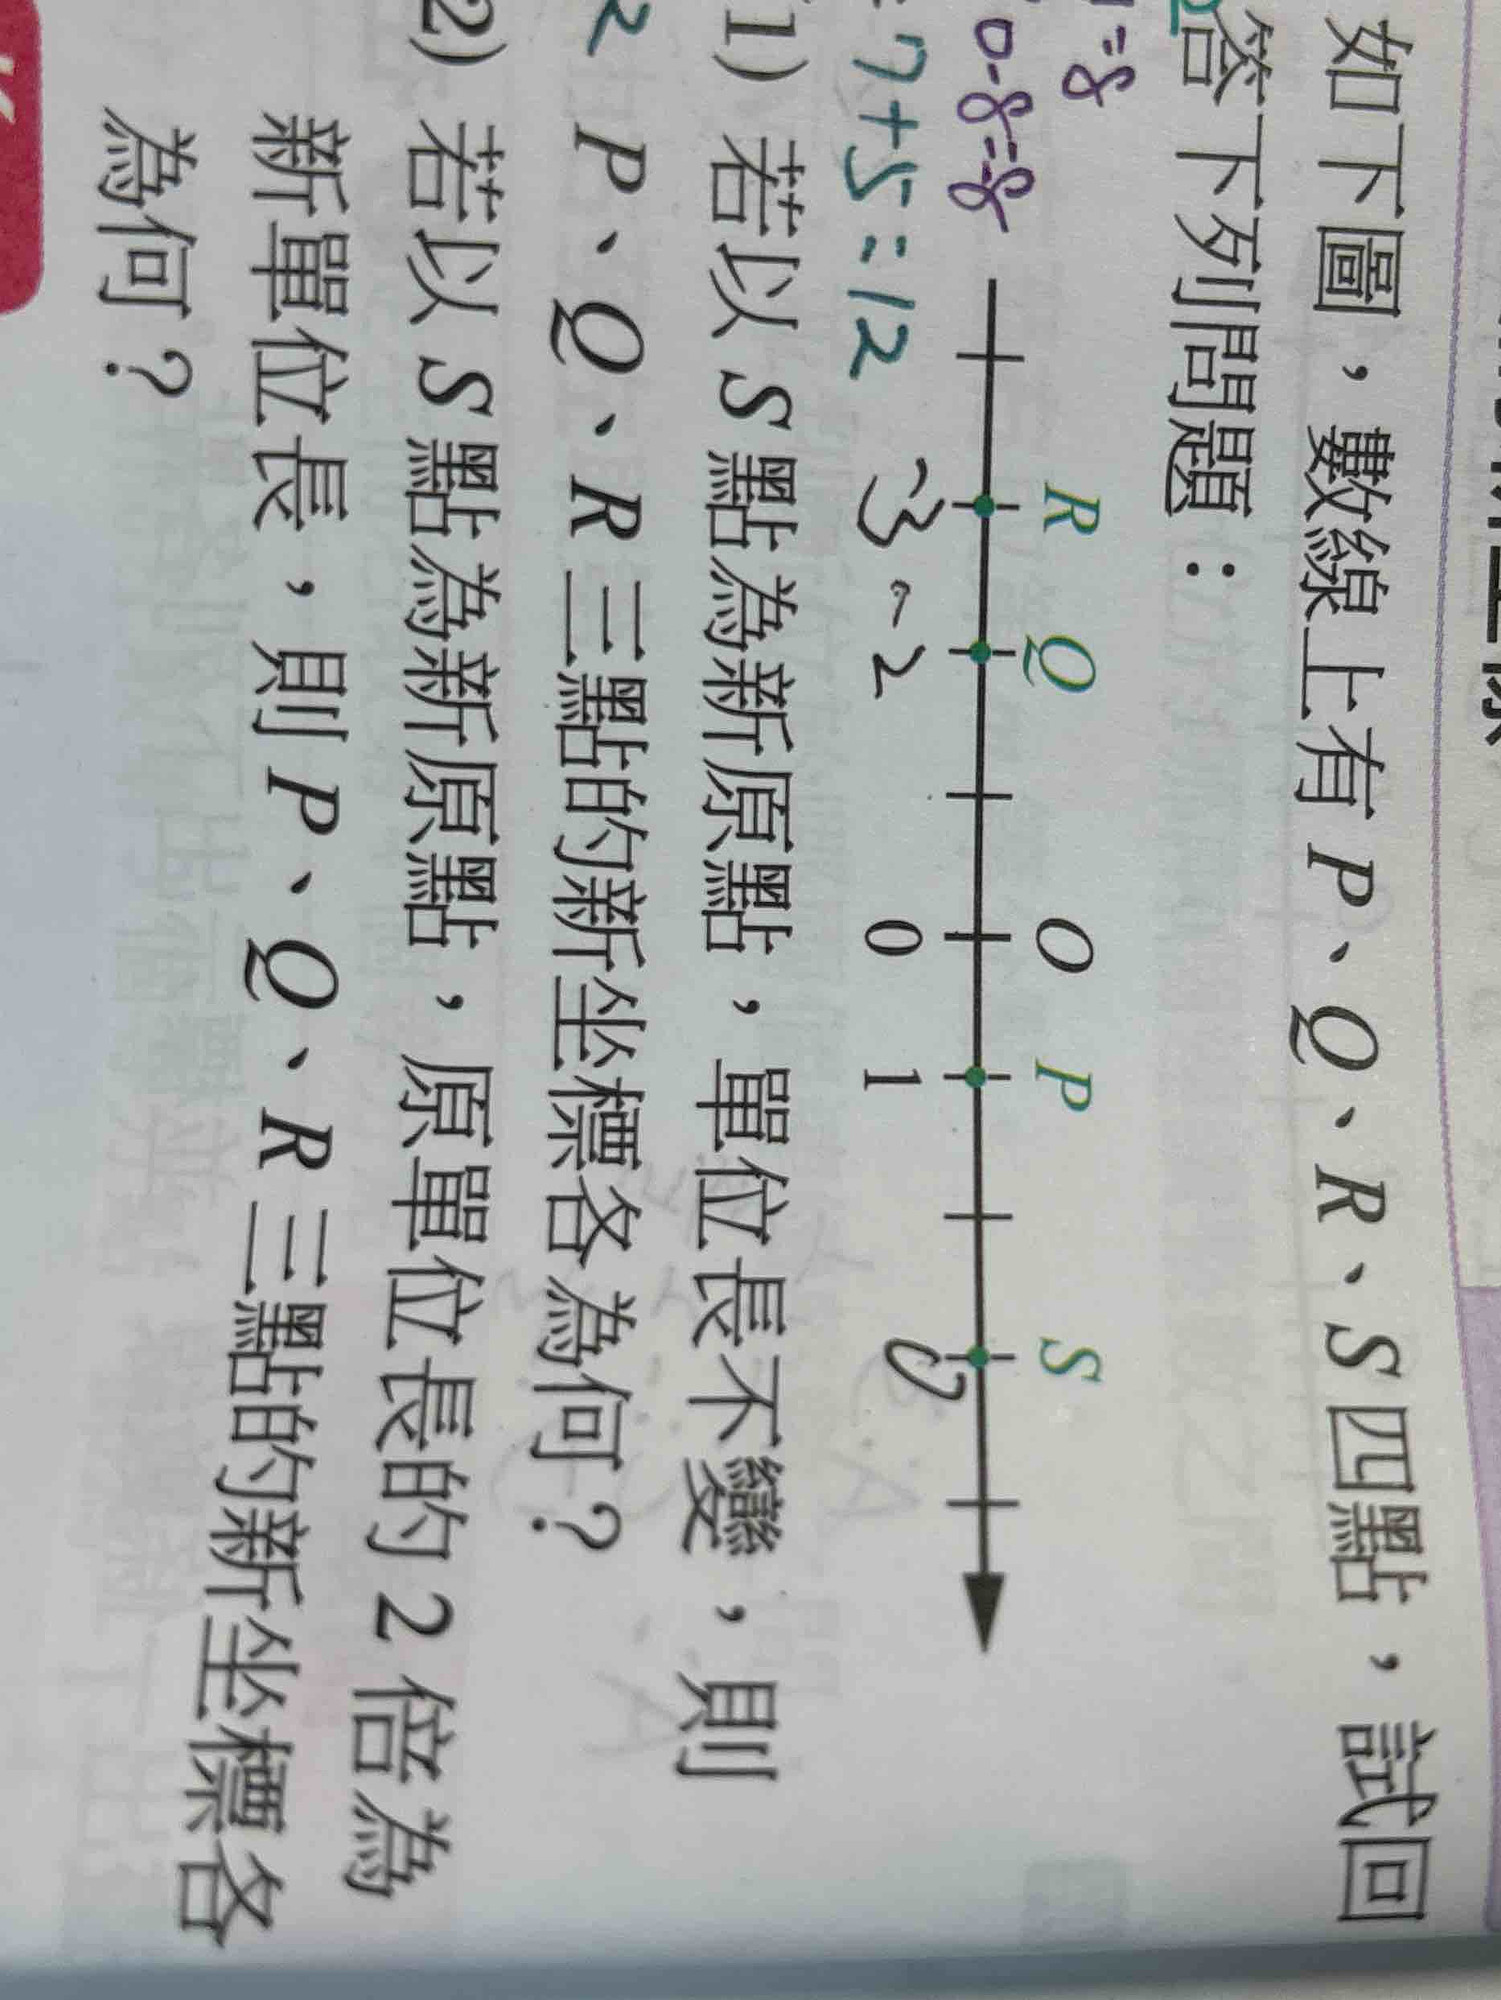 如下圖，數線上有 P、Q、R、S 四點，試回
答下列問題：
1=8
0-8=-8
R Q O P S
-3 -2 0 1 0
=7+5=12
1) 若以 S 點為新原點，單位長不變，則
P、Q、R 三點的新坐標各為何？
2) 若以 S 點為新原點，原單位長的 2 倍為
新單位長，則 P、Q、R 三點的新坐標各
為何？